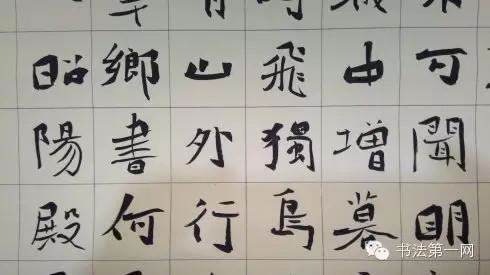 可聞明
中增暮
飛獨鳥
山外行
鄉書何
昭陽殿
书法第一网